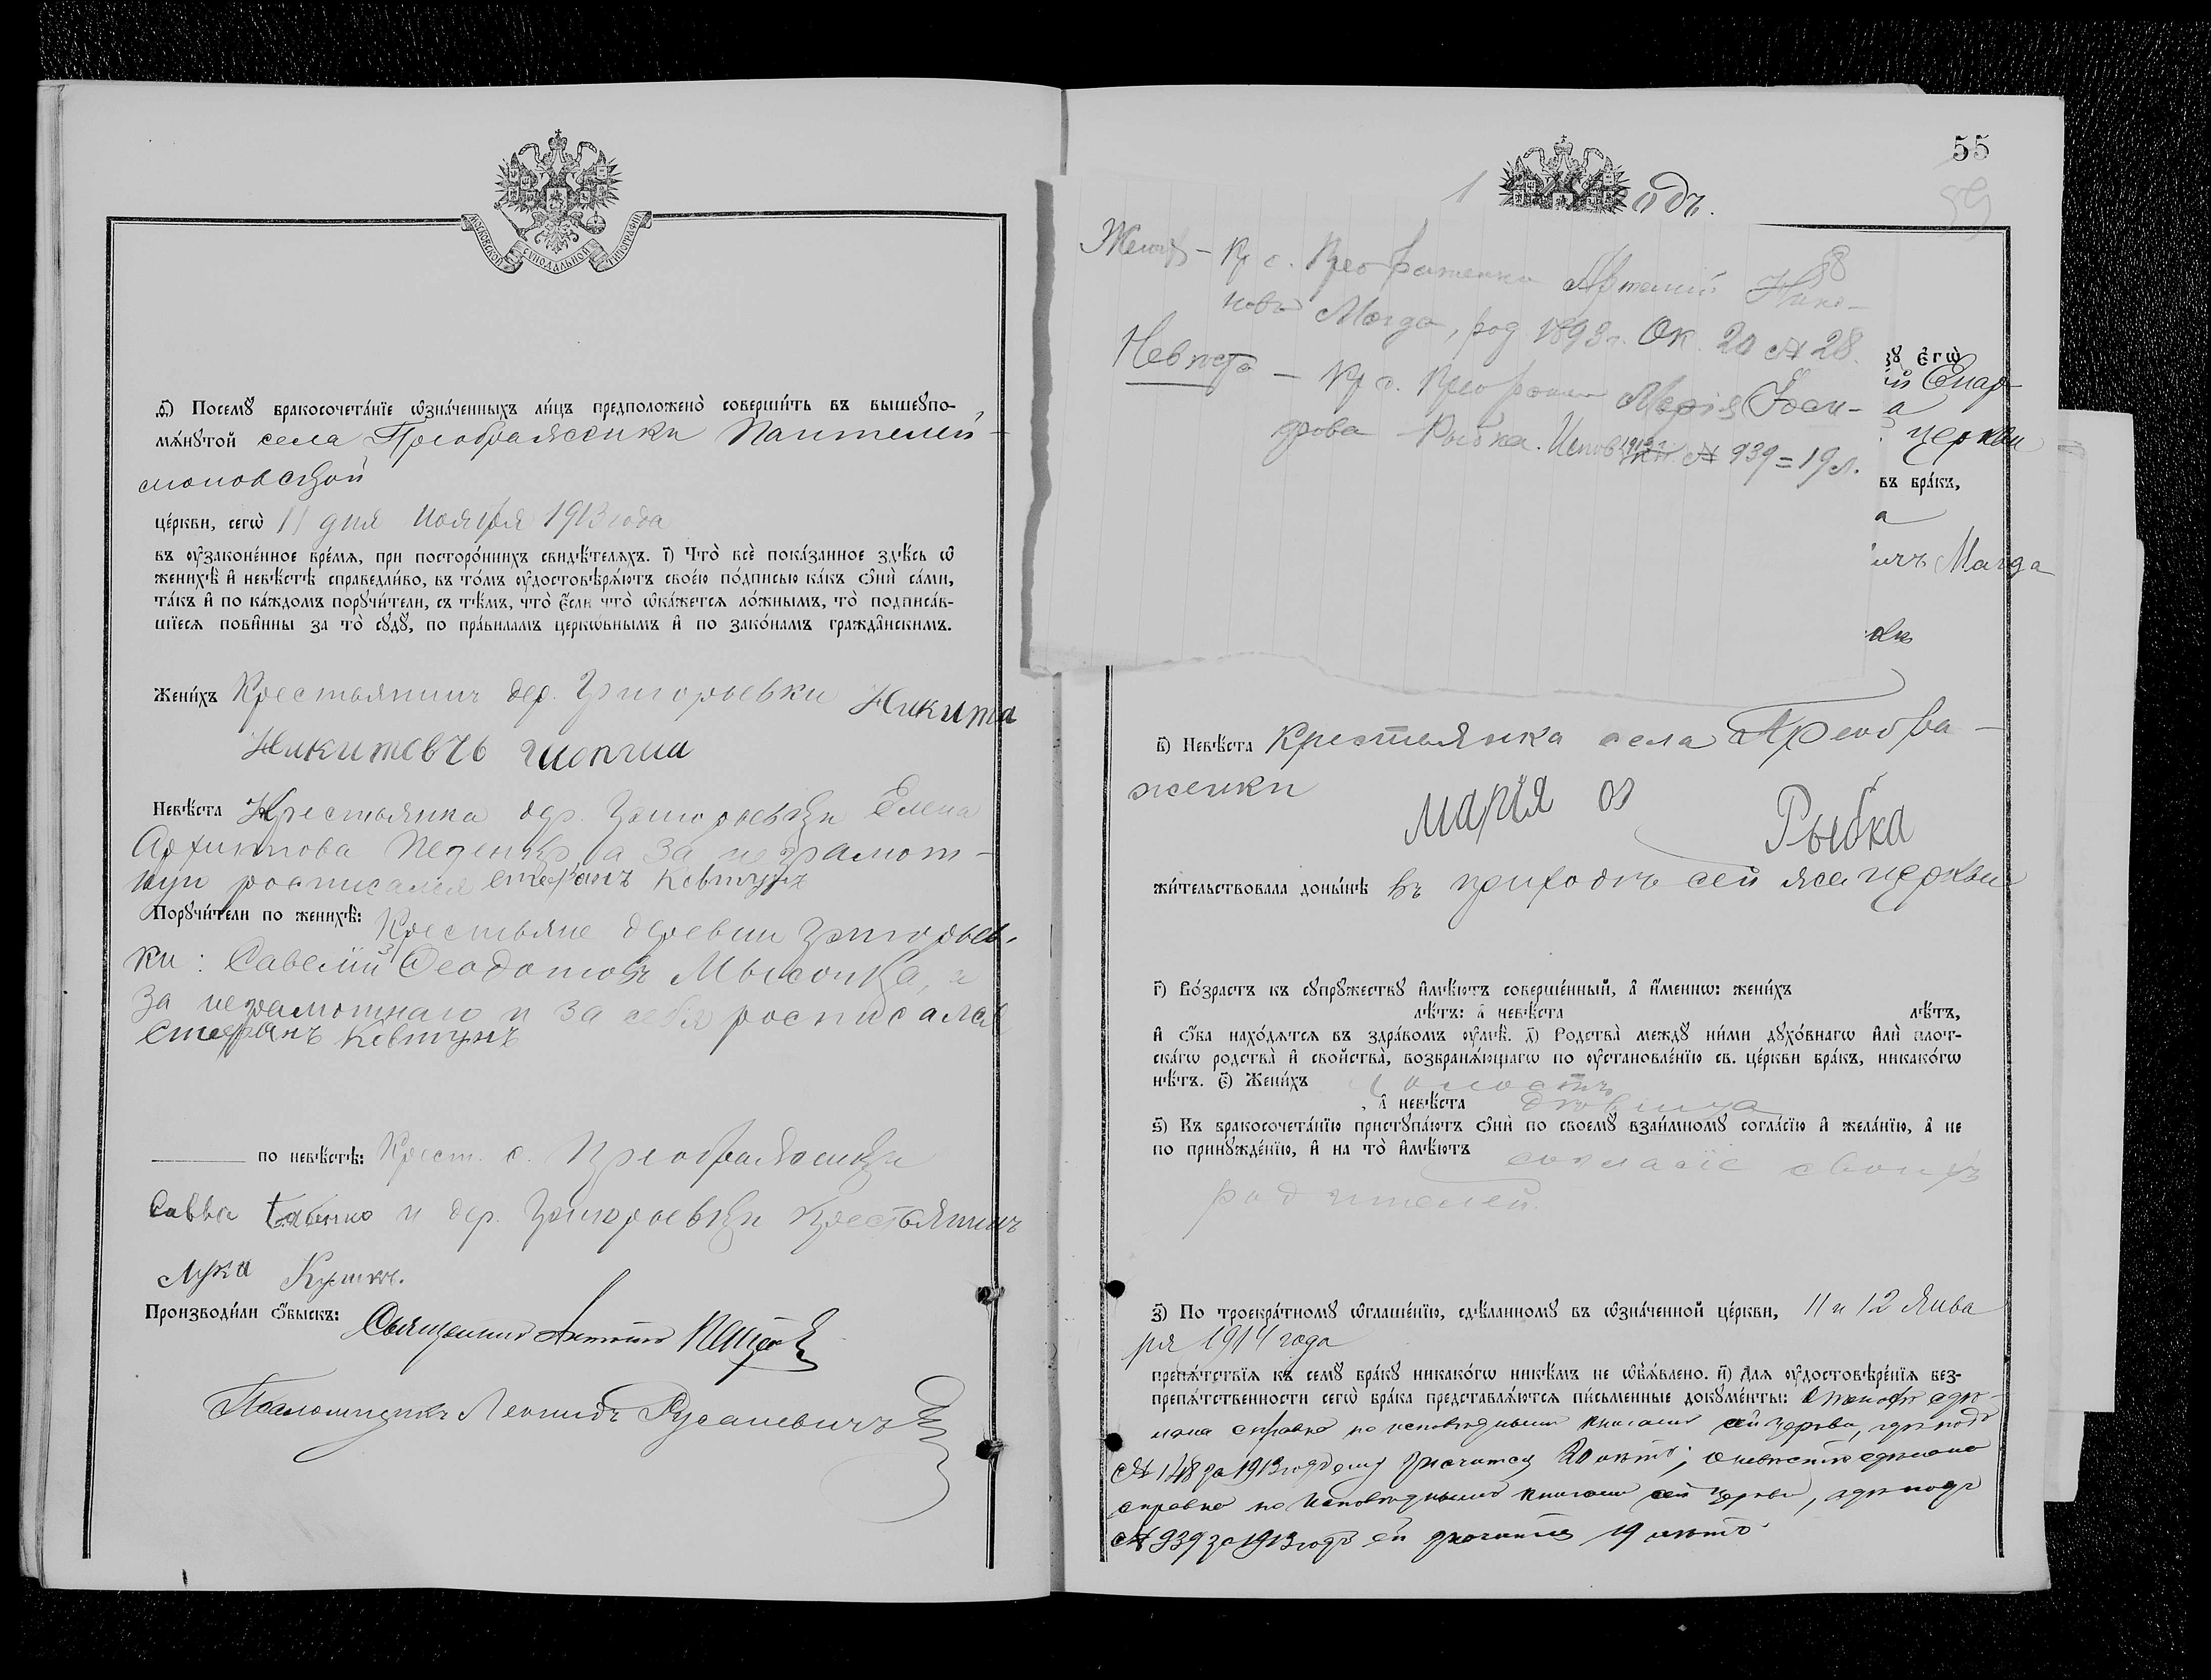 МОСКОВСКОЙ СѴНОДАЛЬНОЙ ТИПОГРАФІИ
Посемꙋ̀ бракосочета́нїе ѡ҆зна́ченныхъ ли́цъ предположено̀ соверши́ть въ вышеꙋпо-
мѧ́нꙋтой села Преображенки Пантелей-
моновской
це́ркви, сегѡ̀ 11 дня Ноября 1913 года
въ ᲂу҆законе́нное вре́мѧ, при посторо́ннихъ свидѣ́телѧхъ. і҃) Что̀ всѐ пока́занное здѣ́сь ѡ҆
женихѣ̀ и҆ невѣ́стѣ справедли́во, въ то́мъ ᲂу҆достовѣрѧ́ютъ свое́ю по́дписью ка́къ ѻ҆нѝ са́ми,
та́къ и҆ по ка́ждомъ порꙋчи́тели, съ тѣ́мъ, что̀ є҆́сли что̀ ѡ҆ка́жетсѧ ло́жнымъ, то̀ подписа́в-
шїесѧ пови́нны за то̀ сꙋдꙋ̀, по пра́виламъ церко́внымъ и҆ по зако́намъ гражда́нскимъ.
Жени́хъ Крестьянинъ дер. Григорьевки Никита
Никитовчъ
Невѣ́ста Крестьянка дер. Григорьевки Елена
Архиппова а за неграмот-
ную росписался Стефанъ Ковтунъ
Порꙋчи́тели по женихѣ̀: Крестьяне деревни Григорьев-
ки: Савелій Ѳеодотовъ а
за неграмотнаго и за себя росписался
Стефанъ Ковтунъ
по невѣ́стѣ: Крест. с. Преображенки
Савва и дер. Григорьевки Крестьянинъ
Лука
Производи́ли ѻ҆́быскъ: Священникъ Антоній
Псаломщикъ Леонидъ Русаневичъ
55
59
1 одъ.
8
Женихъ – Кр с. Преображенки Артемій Нико-
новъ Магда, род. 1893 г. Ок. 20 № 28.
Невѣста – Кр с. Преображ Марія Ѳеои-
Рыбка. Испов 1913 г. № 939 = 19 л.
є҆гѡ̀
Епар-
а
церкви
въ бра́къ,
а
ичъ Магда
в҃) Невѣ́ста Крестьянка села Преобра-
женки
Марія Ѳ Рыбка
жи́тельствовала доны́нѣ въ приходѣ сей же церкви
г҃) Во́зрастъ къ сꙋпрꙋ́жествꙋ и҆мѣ́ютъ соверше́нный, а҆ и҆́менно: жени́хъ
лѣ́тъ: а҆ невѣ́ста лѣ́тъ,
и҆ ѻ҆́ба нахо́дѧтсѧ въ здра́вомъ ᲂу҆мѣ̀. д҃) Родства̀ междꙋ̀ ни́ми дꙋхо́внагѡ и҆лѝ плот-
ска́гѡ родства̀ и҆ сво́йства̀, возбранѧ́ющагѡ по ᲂу҆становле́нїю св. це́ркви бра́къ, никако́гѡ
нѣ́тъ. є҃) Жени́хъ холостъ
, а҆ невѣ́ста дѣвица
ѕ҃) Къ бракосочета́нїю пристꙋпа́ютъ ѻ҆нѝ по своемꙋ̀ взаи́мномꙋ согла́сїю и҆ жела́нїю, а҆ не
по принꙋжде́нїю, и҆ на то̀ и҆мѣ́ютъ согласіе своихъ
родителей.
з҃) По троекра́тномꙋ ѡ҆глаше́нїю, сдѣ́ланномꙋ въ ѡ҆зна́ченной це́ркви, 11 и 12 Янва
ря 1914 года
препѧ́тствїѧ къ семꙋ̀ бра́кꙋ никако́гѡ никѣ́мъ не ѡ҆б̾ѧ́влено. и҃) Длѧ ᲂу҆достовѣре́нїѧ без-
препѧ́тственности сегѡ̀ бра́ка представлѧ́ютсѧ пи́сьменные докꙋме́нты: О женихѣ сдѣ-
лана справка по исповѣднымъ книгамъ сей церкви, гдѣ подъ
№ 148 за 1913 годъ ему значится 20 лѣтъ; о невѣстѣ сдѣлана
справка по исповѣднымъ книгамъ сей церкви, гдѣ подъ
№ 939 за 1913 годъ ей значится 19 лѣтъ